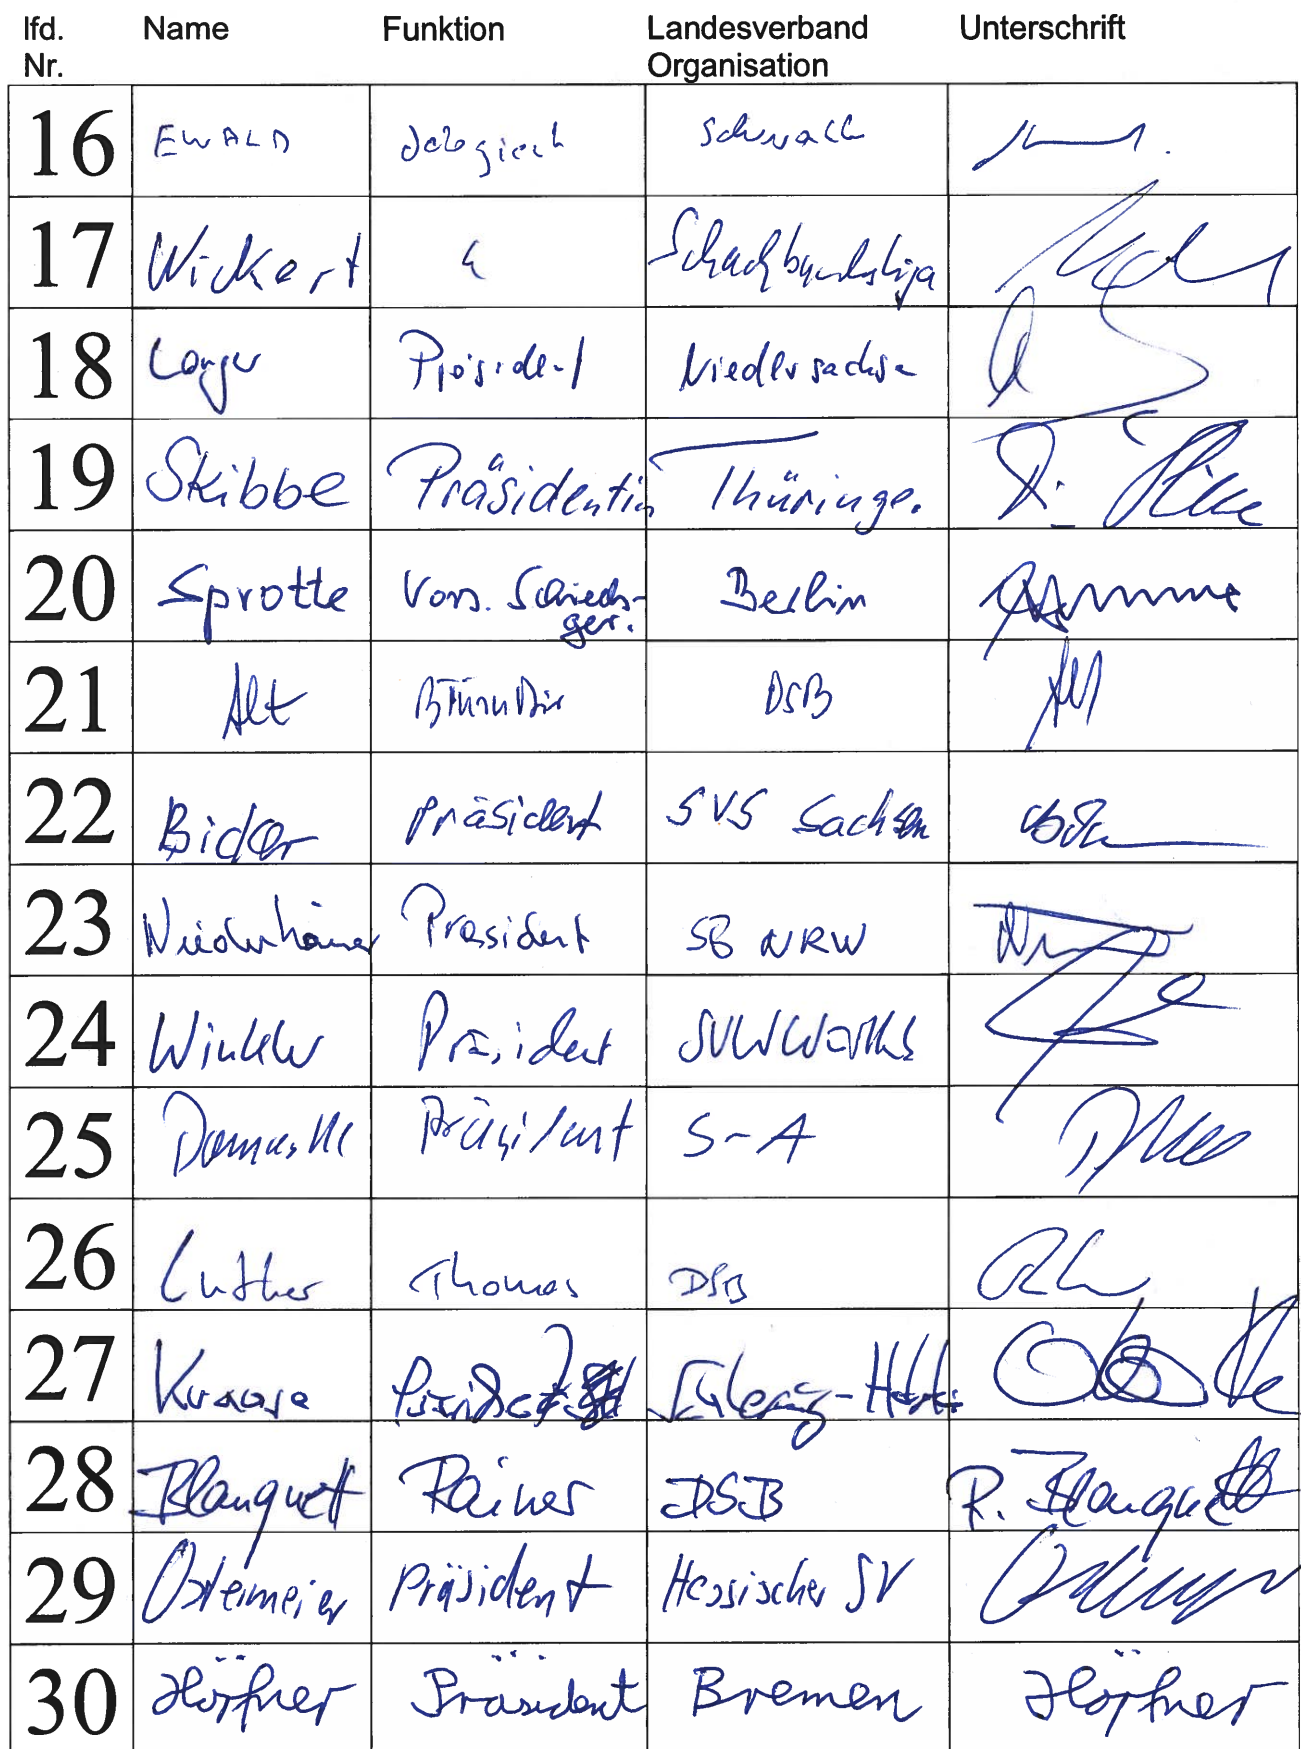 lfd. Nr. Name Funktion Landesverband Organisation Unterschrift
16 EWALD delegiert Schwalb
17 Wickert " Schachbundesliga
18 Langer Präsident Niedersachsen
19 Skibbe Präsidentin Thüringen
20 Sprotte Vors. Schieds-
ger. Berlin
21 Alt BTurnDir DSB Alt
22 Bider Präsident SVS Sachsen
23 Niederhäuser Präsident SB NRW
24 Winkler Präsident SVW Württbg
25 Domaske Präsident S-A
26 Luther Thomas DSB
27 Krause Präsident Schleswig-Holstein
28 Blanquett Rainer DSB R. Blanquett
29 Ostermeier Präsident Hessischer SV
30 Höpfner Präsident Bremen Höpfner